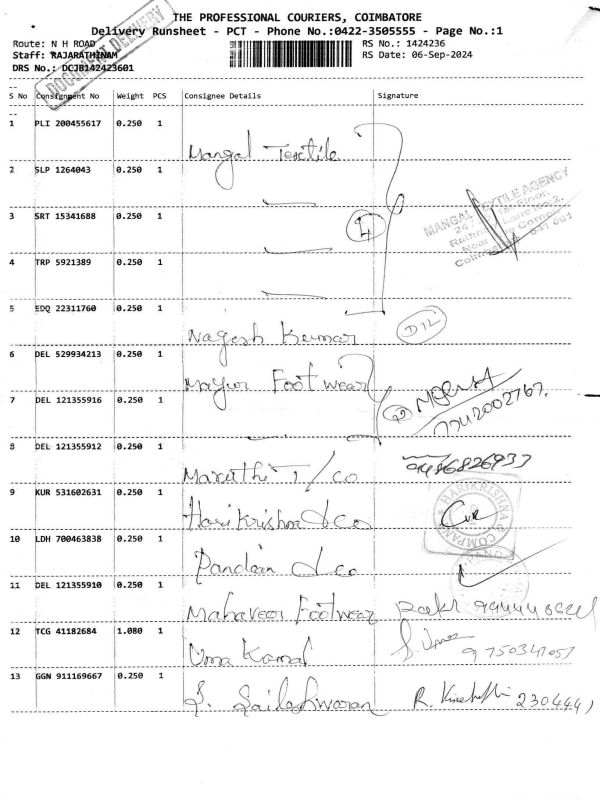 THE PROFESSIONAL COURIERS, COIMBATORE
Delivery Runsheet - PCT - Phone No.:0422-3505555 - Page No.:1
Route: N H ROAD RS No.: 1424236
Staff: RAJARATHINAM RS Date: 06-Sep-2024
DRS No.: DCJB142423601
DOCUMENT DELIVERY
S No Consignment No Weight PCS Consignee Details Signature
1 PLI 200455617 0.250 1 Mangal Textile
2 SLP 1264043 0.250 1
MANGAL TEXTILE AGENCY
3 SRT 15341688 0.250 1 4
4 TRP 5921389 0.250 1
5 EDQ 22311760 0.250 1 Nagesh Kumar
6 DEL 529934213 0.250 1 Mayur Footwear
7 DEL 121355916 0.250 1 2
8 DEL 121355912 0.250 1 Maruthi T/co 9486826933
9 KUR 531602631 0.250 1 Harikrishna & co
HARIKRISHNA & COMPANY
10 LDH 700463838 0.250 1 Pandian & co
11 DEL 121355910 0.250 1 Mahaveer Footwear
12 TCG 41182684 1.080 1 Uma Kamal 9750347057
13 GGN 911169667 0.250 1 S. Saileshwaran 2304441